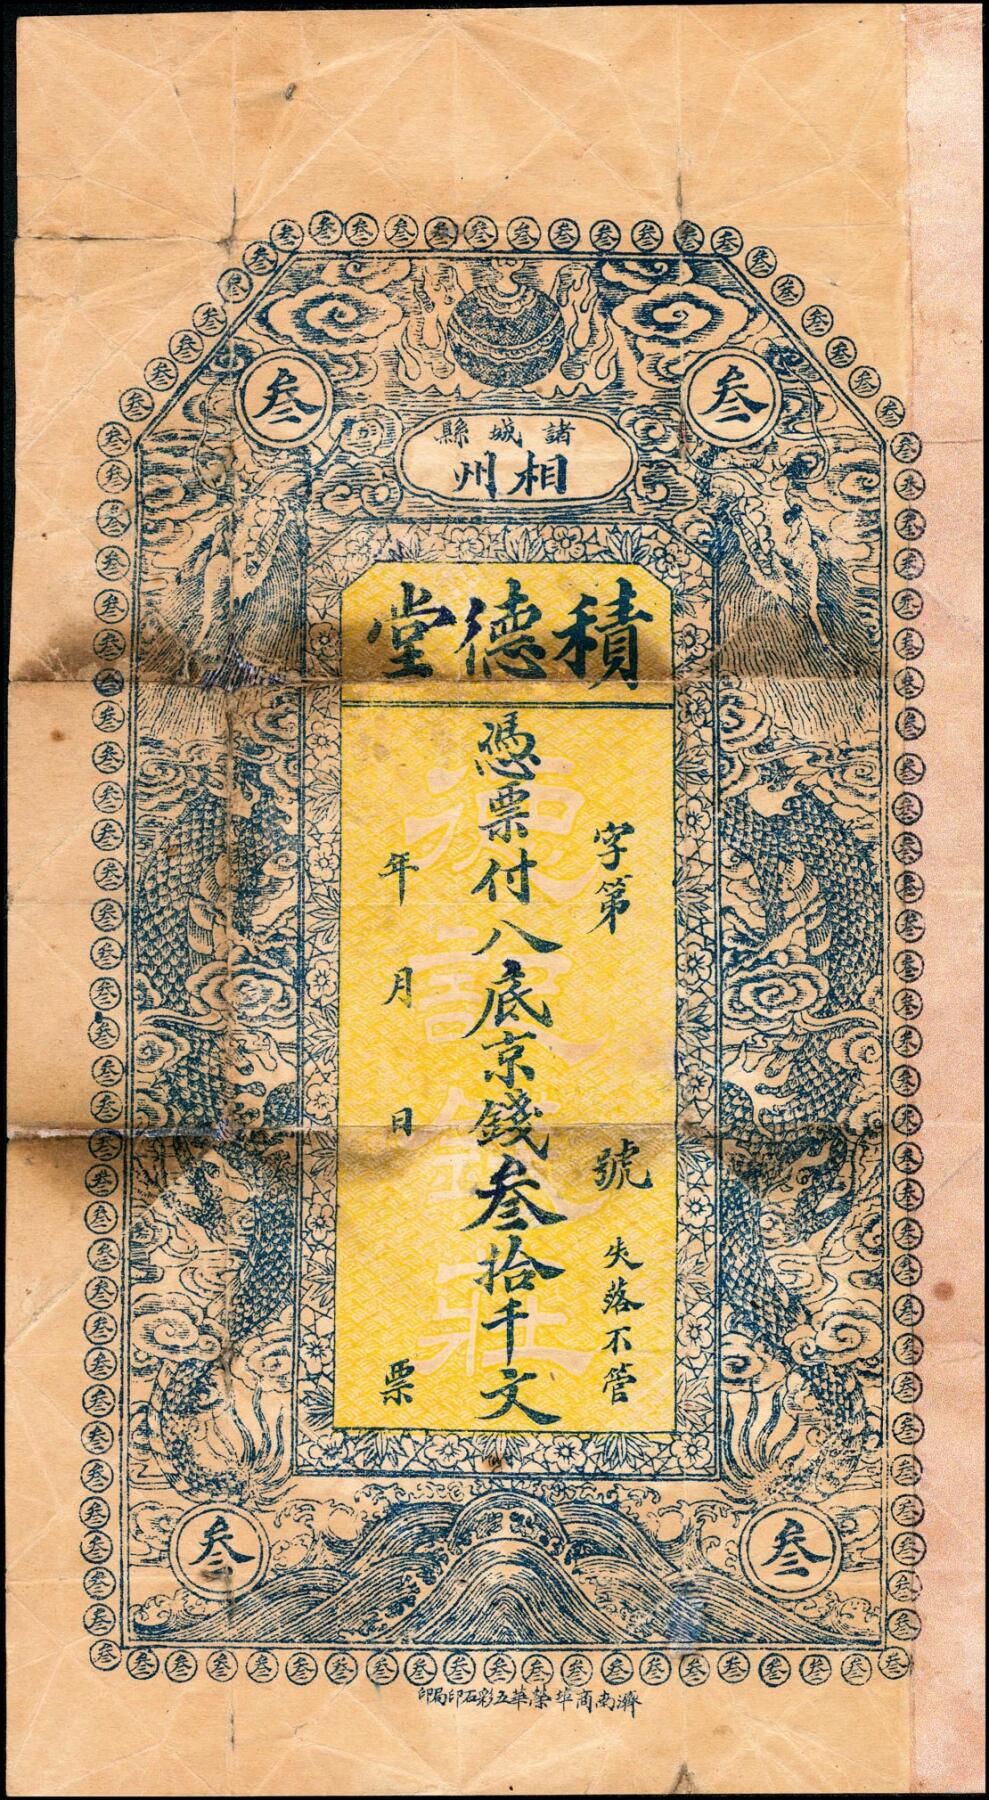 叁 叁
諸城縣
相州
積德堂
字第 號 失落不管
憑票付八底京錢叁拾千文
年 月 日 票
德記錢莊
叁 叁
濟南商埠榮華五彩石印局印